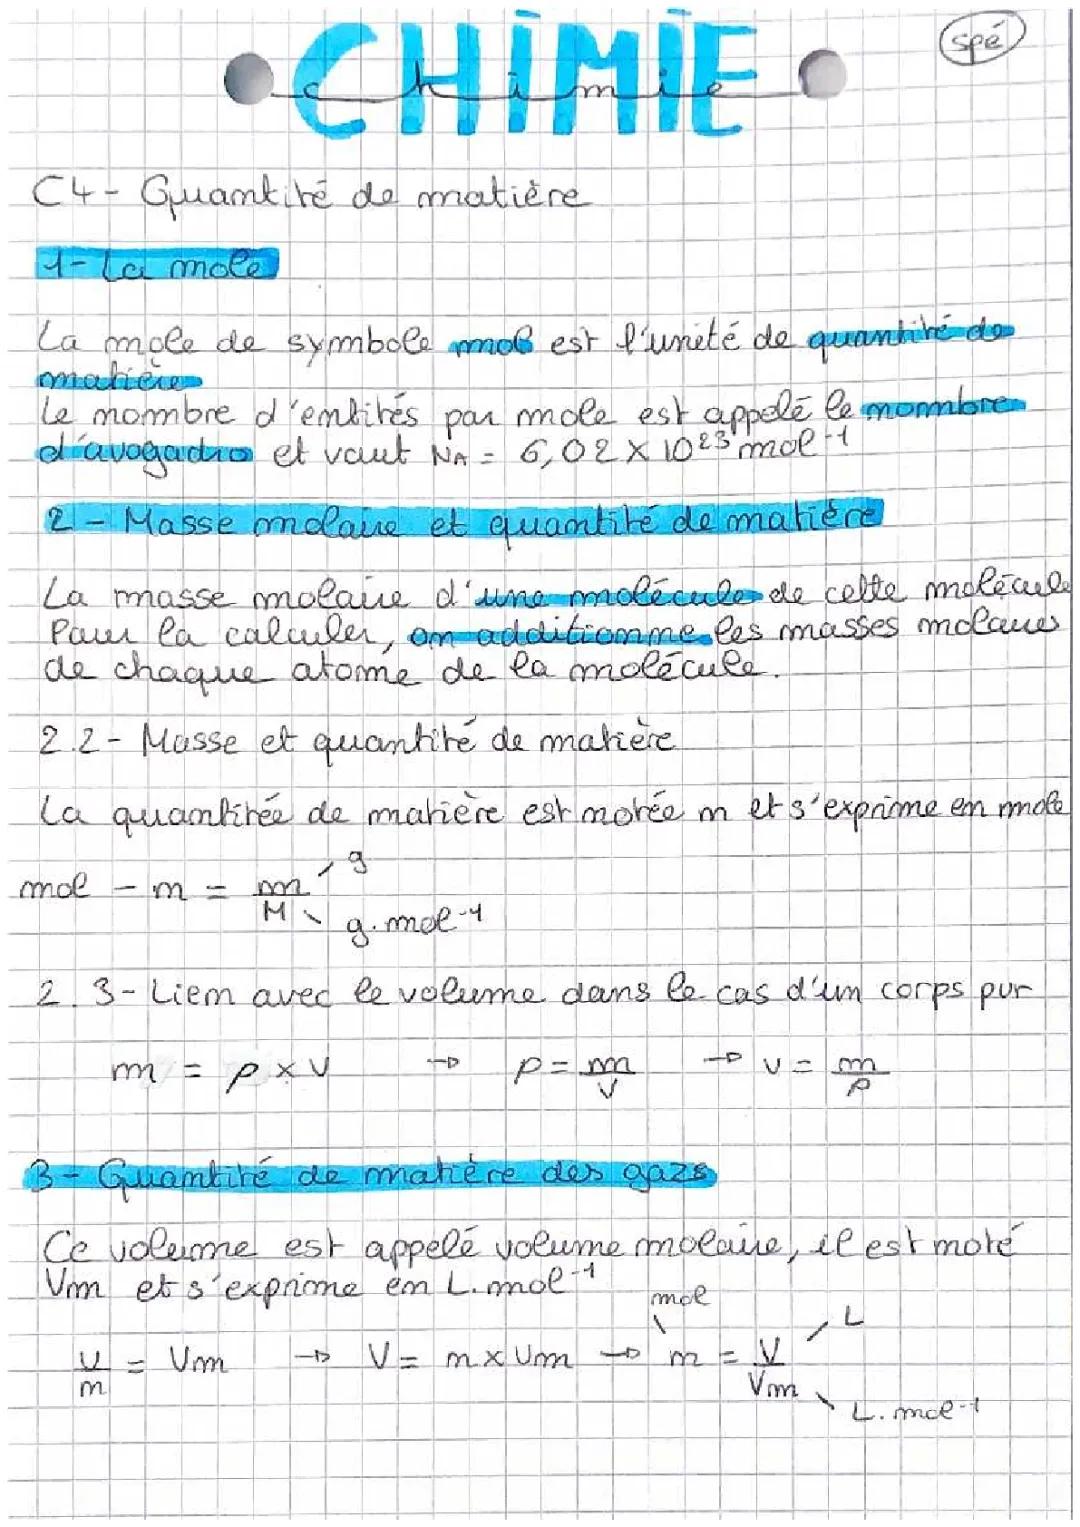 CHIMIE
chimie
spé
C4 - Quantité de matière
1 - La mole
La mole de symbole mol est l'unité de quantité de
matière
Le nombre d'entités par mole est appelé le nombre
d'avogadro et vaut NA = 6,02 × 10^23 mol^-1
2 - Masse molaire et quantité de matière
La masse molaire d'une molécule de cette molécule
Pour la calculer, on additionne les masses molaires
de chaque atome de la molécule.
2.2 - Masse et quantité de matière
La quantitée de matière est notée n et s'exprime en mole
mol - n = m/M g g.mol^-1
2.3 - Lien avec le volume dans le cas d'un corps pur
m = ρ × V → ρ = m/V → V = m/ρ
3 - Quantité de matière des gazs
Ce volume est appelé volume molaire, il est noté
Vm et s'exprime en L.mol^-1
V/n = Vm → V = n × Vm → mol n = V/Vm L L.mol^-1